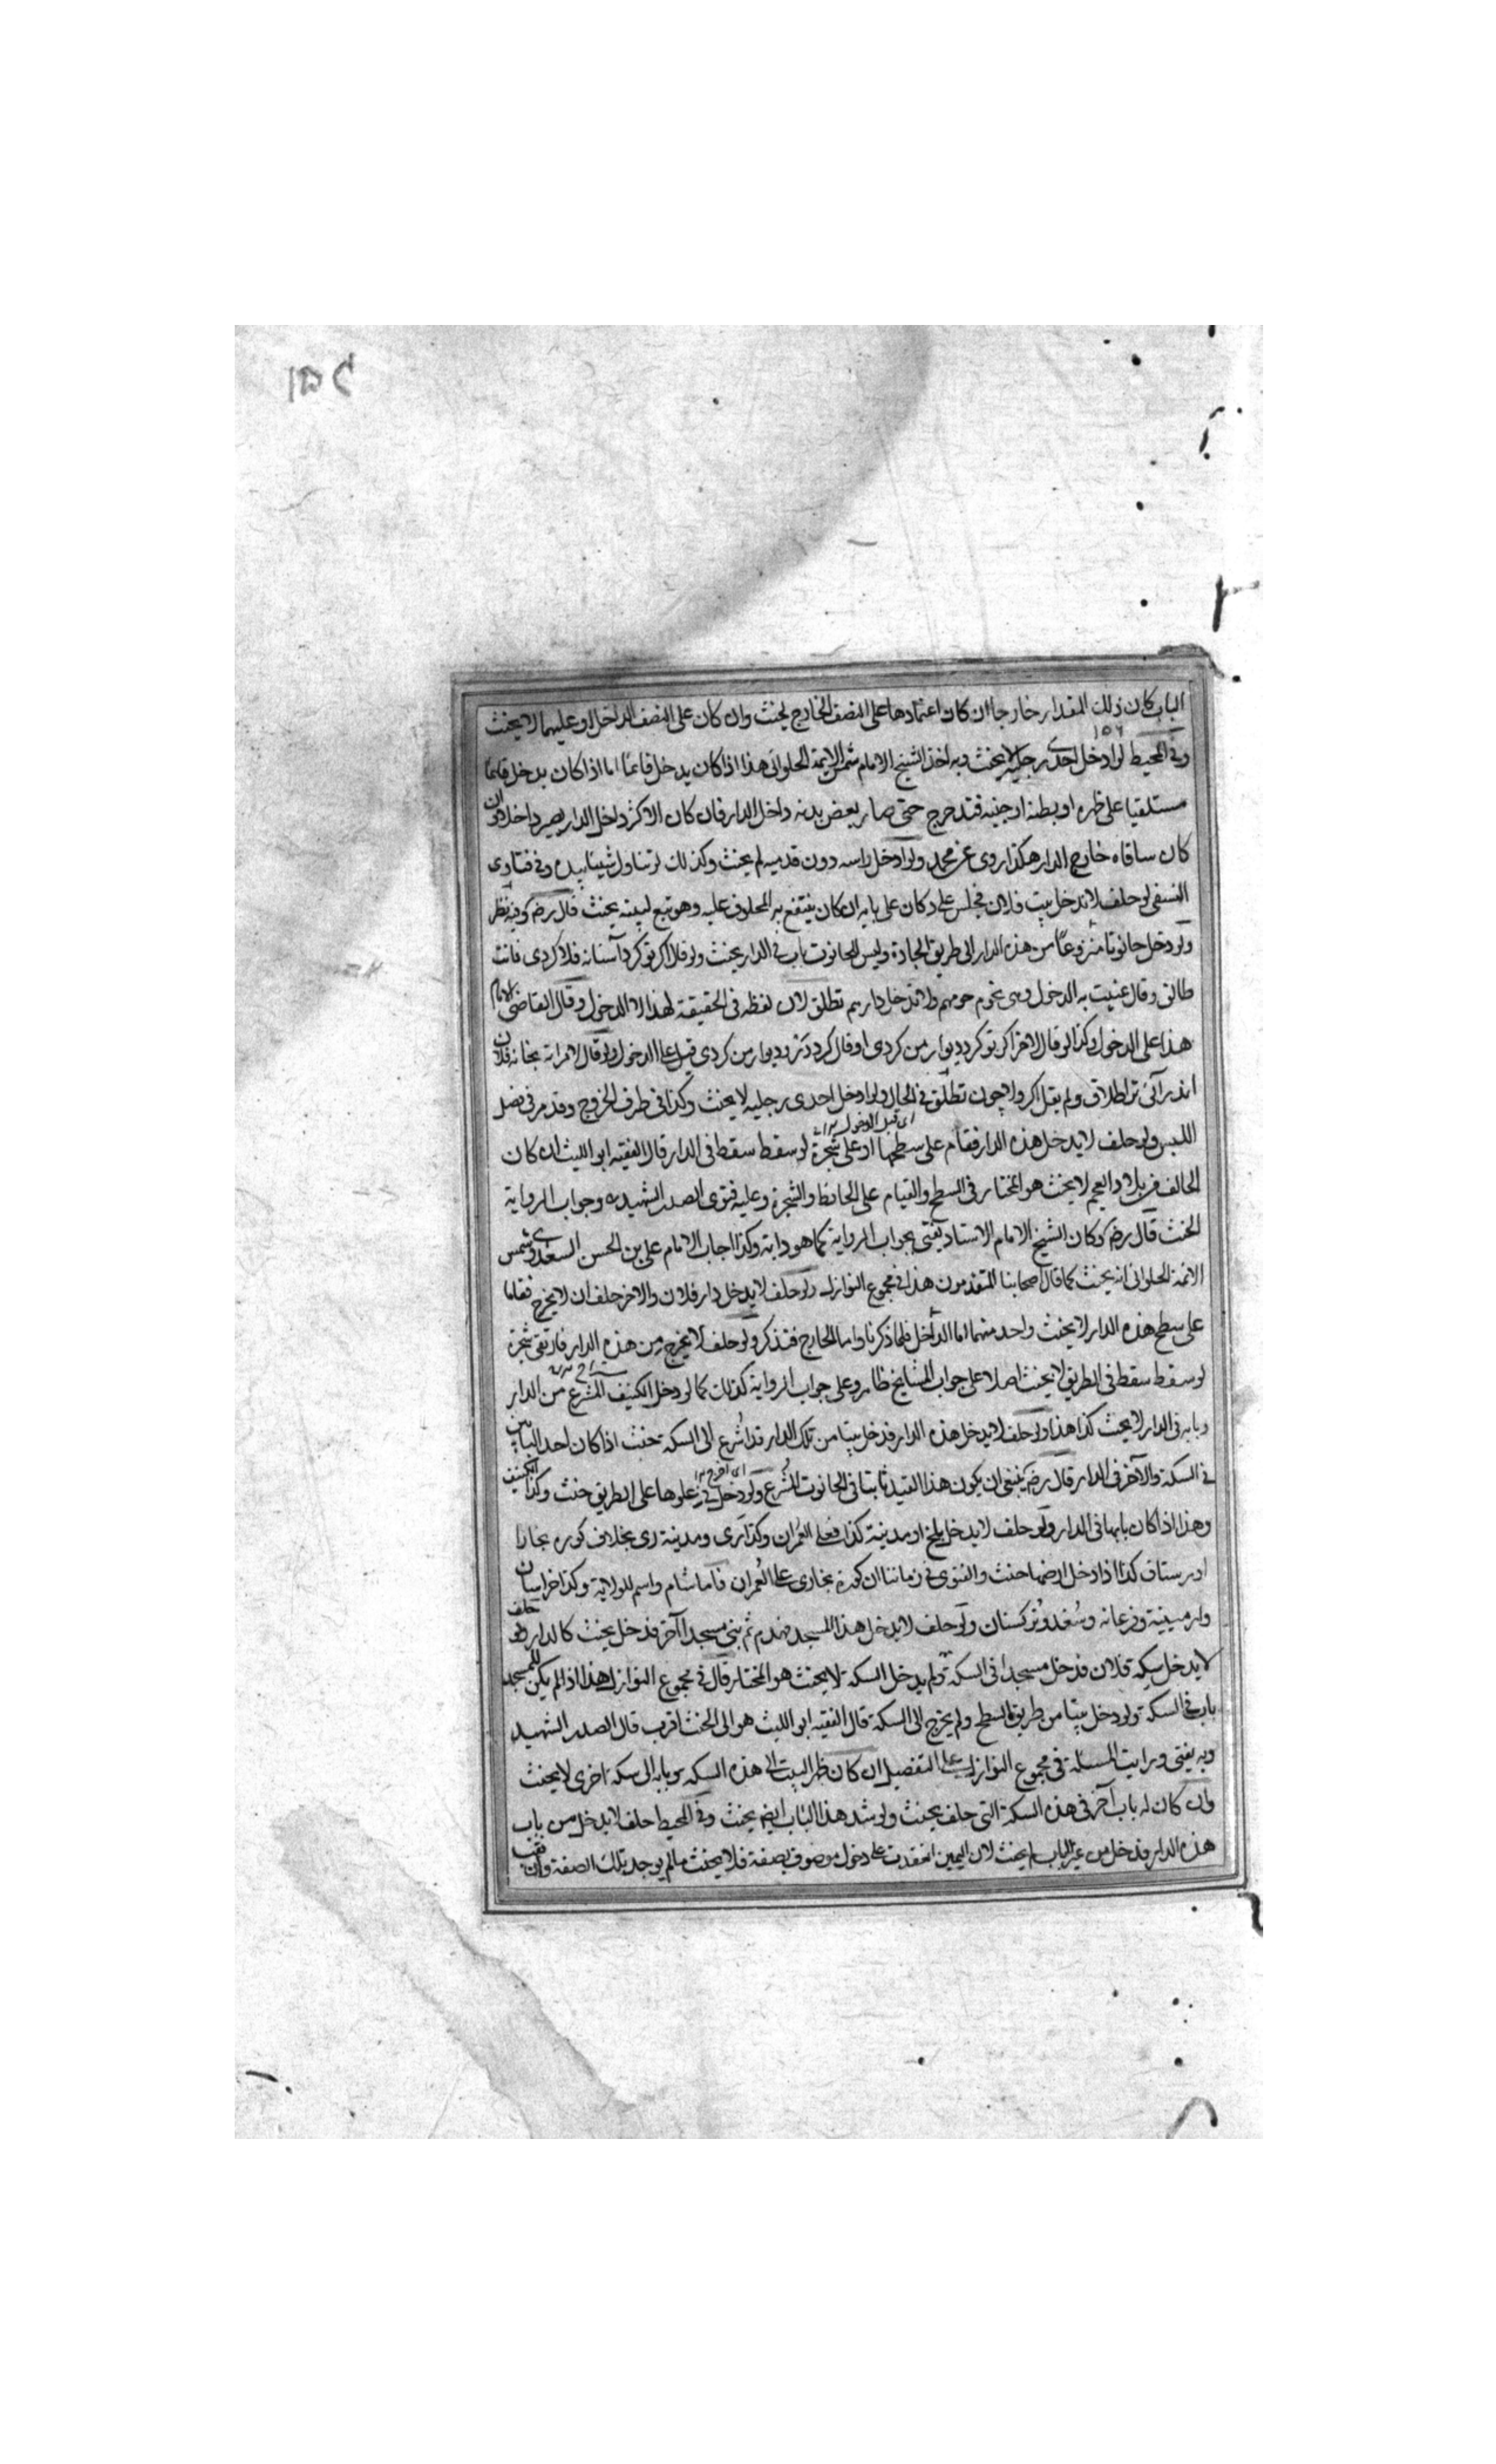 الباب كان ذلك المقدار خارجا ان كان اعتمادها على النصف الخارج يحنث وان كان على النصف الداخل او عليهما لا يحنث
وفي المحيط لو ادخل احدى رجليه لا يحنث وبه اخذ الشيخ الامام شمس الايمة الحلوائي هذا اذا كان يدخل قائما اما اذا كان يدخل
مستلقيا على ظهره او بطنه او جنبه فتدحرج حتى صار بعض بدنه داخل الدار فان كان الاكثر داخل الدار يصير داخلا وان
كان ساقاه خارج الدار هكذا روى عن محمد ولو ادخل راسه دون قدميه لم يحنث وكذلك لو تناول شيئا بيده وفي فتاوى
النسفي لو حلف لا يدخل بيت فلان فجلس على دكان على بابه ان كان ينتفع به المحلوف عليه وهو تبع لبيته يحنث قال رضه وفيه نظر
ولو دخل حانوتا مشروعا من هذه الدار الى طريق الجادة وليس للحانوت باب في الدار يحنث ولو قال اكر تو كرد آستانه فلان كردى فانت
طالق وقال عنيت به الدخول تطلق لان لفظه في الحقيقة لهذا لا الدخول وقال القاضي الامام
هذا على الدخول وكذا لو قال لاخر اكر تو كرد ديوار من كردى او قال كرد در وديوار من كردى قبل على الدخول ولو قال لامراته بخانه فلان
اندر آئى ترا طلاق ولم يقل اكر وا چون تطلق في الحال ولو ادخل احدى رجليه لا يحنث وكذا في طرف الخروج وقد مر في فصل
اى قبل الدخول
اللبس ولو حلف لا يدخل هذه الدار فقام على سطحها او على شجرة لو سقط سقط في الدار قال الفقيه ابو الليث ان كان
الحالف من بلاد العجم لا يحنث هو المختار في السطح والقيام على الحائط والشجرة وعليه فتوى الصدر الشهيد وجواب الرواية
الحنث قال رضه وكان الشيخ الامام الاستاد يفتي بجواب الرواية كما هو دابه وكذا اجاب الامام على بن الحسن السعدى وشمس
الائمة الحلوانى انه يحنث كما قال اصحابنا المتقدمون هذا في مجموع النوازل ولو حلف لا يدخل دار فلان والاخر حلف ان لا يخرج فقاما
على سطح هذه الدار لا يحنث واحد منهما اما الداخل فلما ذكرنا واما الخارج فتذكر ولو حلف لا يخرج من هذه الدار فارتقى شجرة
لو سقط سقط في الطريق لا يحنث اصلا على جواب المشايخ ظاهر وعلى جواب الرواية كذلك كما لو دخل الكنيف المشرع من الدار
وبابه في الدار لا يحنث كذا هذا ولو حلف لا يدخل هذه الدار فدخل بيتا من تلك الدار قد اشرع الى السكة يحنث اذا كان احد البابين
في السكة والآخر في الدار قال رضه ينبغي ان يكون هذا القيد ثابتا في الحانوت المشرع ولو دخل في علوها على الطريق حنث وكذا الكنيف
وهذا اذا كان بابها في الدار ولو حلف لا يدخل بلخ او مدينة كذا فعلى العمران وكذا رى ومدينة رى بخلاف كوره بخارا
او رستاق كذا اذا دخل ارضها حنث والفتوى في زماننا ان كورة بخارى على العمران فاما شام واسم للولاية وكذا خراسان
وارمينية وفرغانه وسغد وتركستان ولو حلف لا يدخل هذا المسجد فهدم ثم بنى مسجدا آخر فدخل يحنث كالدار ولو حلف
لا يدخل سكة فلان فدخل مسجدا في السكة ولم يدخل السكة لا يحنث هو المختار قال في مجموع النوازل هذا اذا لم يكن للمسجد
باب في السكة ولو دخل بيتا من طريق السطح ولم يخرج الى السكة قال الفقيه ابو الليث هو الى الحنث اقرب قال الصدر الشهيد
وبه يفتى ورايت المسئلة في مجموع النوازل على التفصيل ان كان ظهر البيت الى هذه السكة وبابه الى سكة اخرى لا يحنث
وان كان له باب آخر في هذه السكة التى حلف يحنث ولو سد هذا الباب ايضم يحنث وفي المحيط حلف لا يدخل من باب
هذه الدار فدخل من غير الباب لم يحنث لان اليمين انعقدت على دخول موصوف بصفة فلا يحنث مالم يوجد تلك الصفة وان نقب